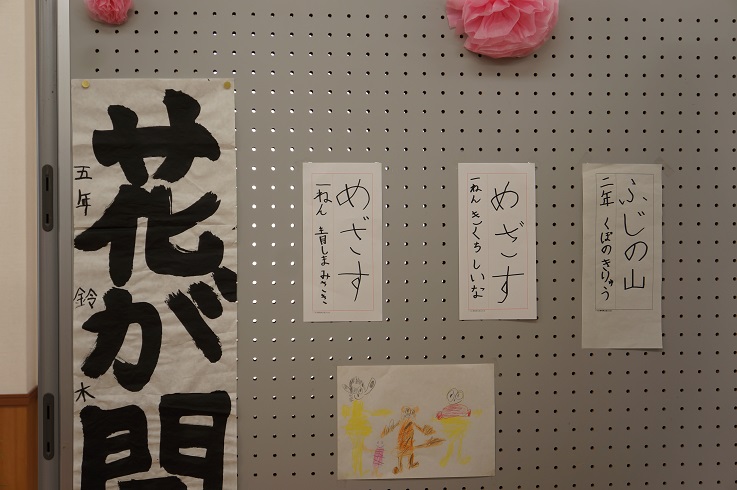 花が
五年 鈴木
めざす
一ねん 青しまみさき
めざす
一ねん きくちしいな
ふじの山
二年 くぼのきりゅう